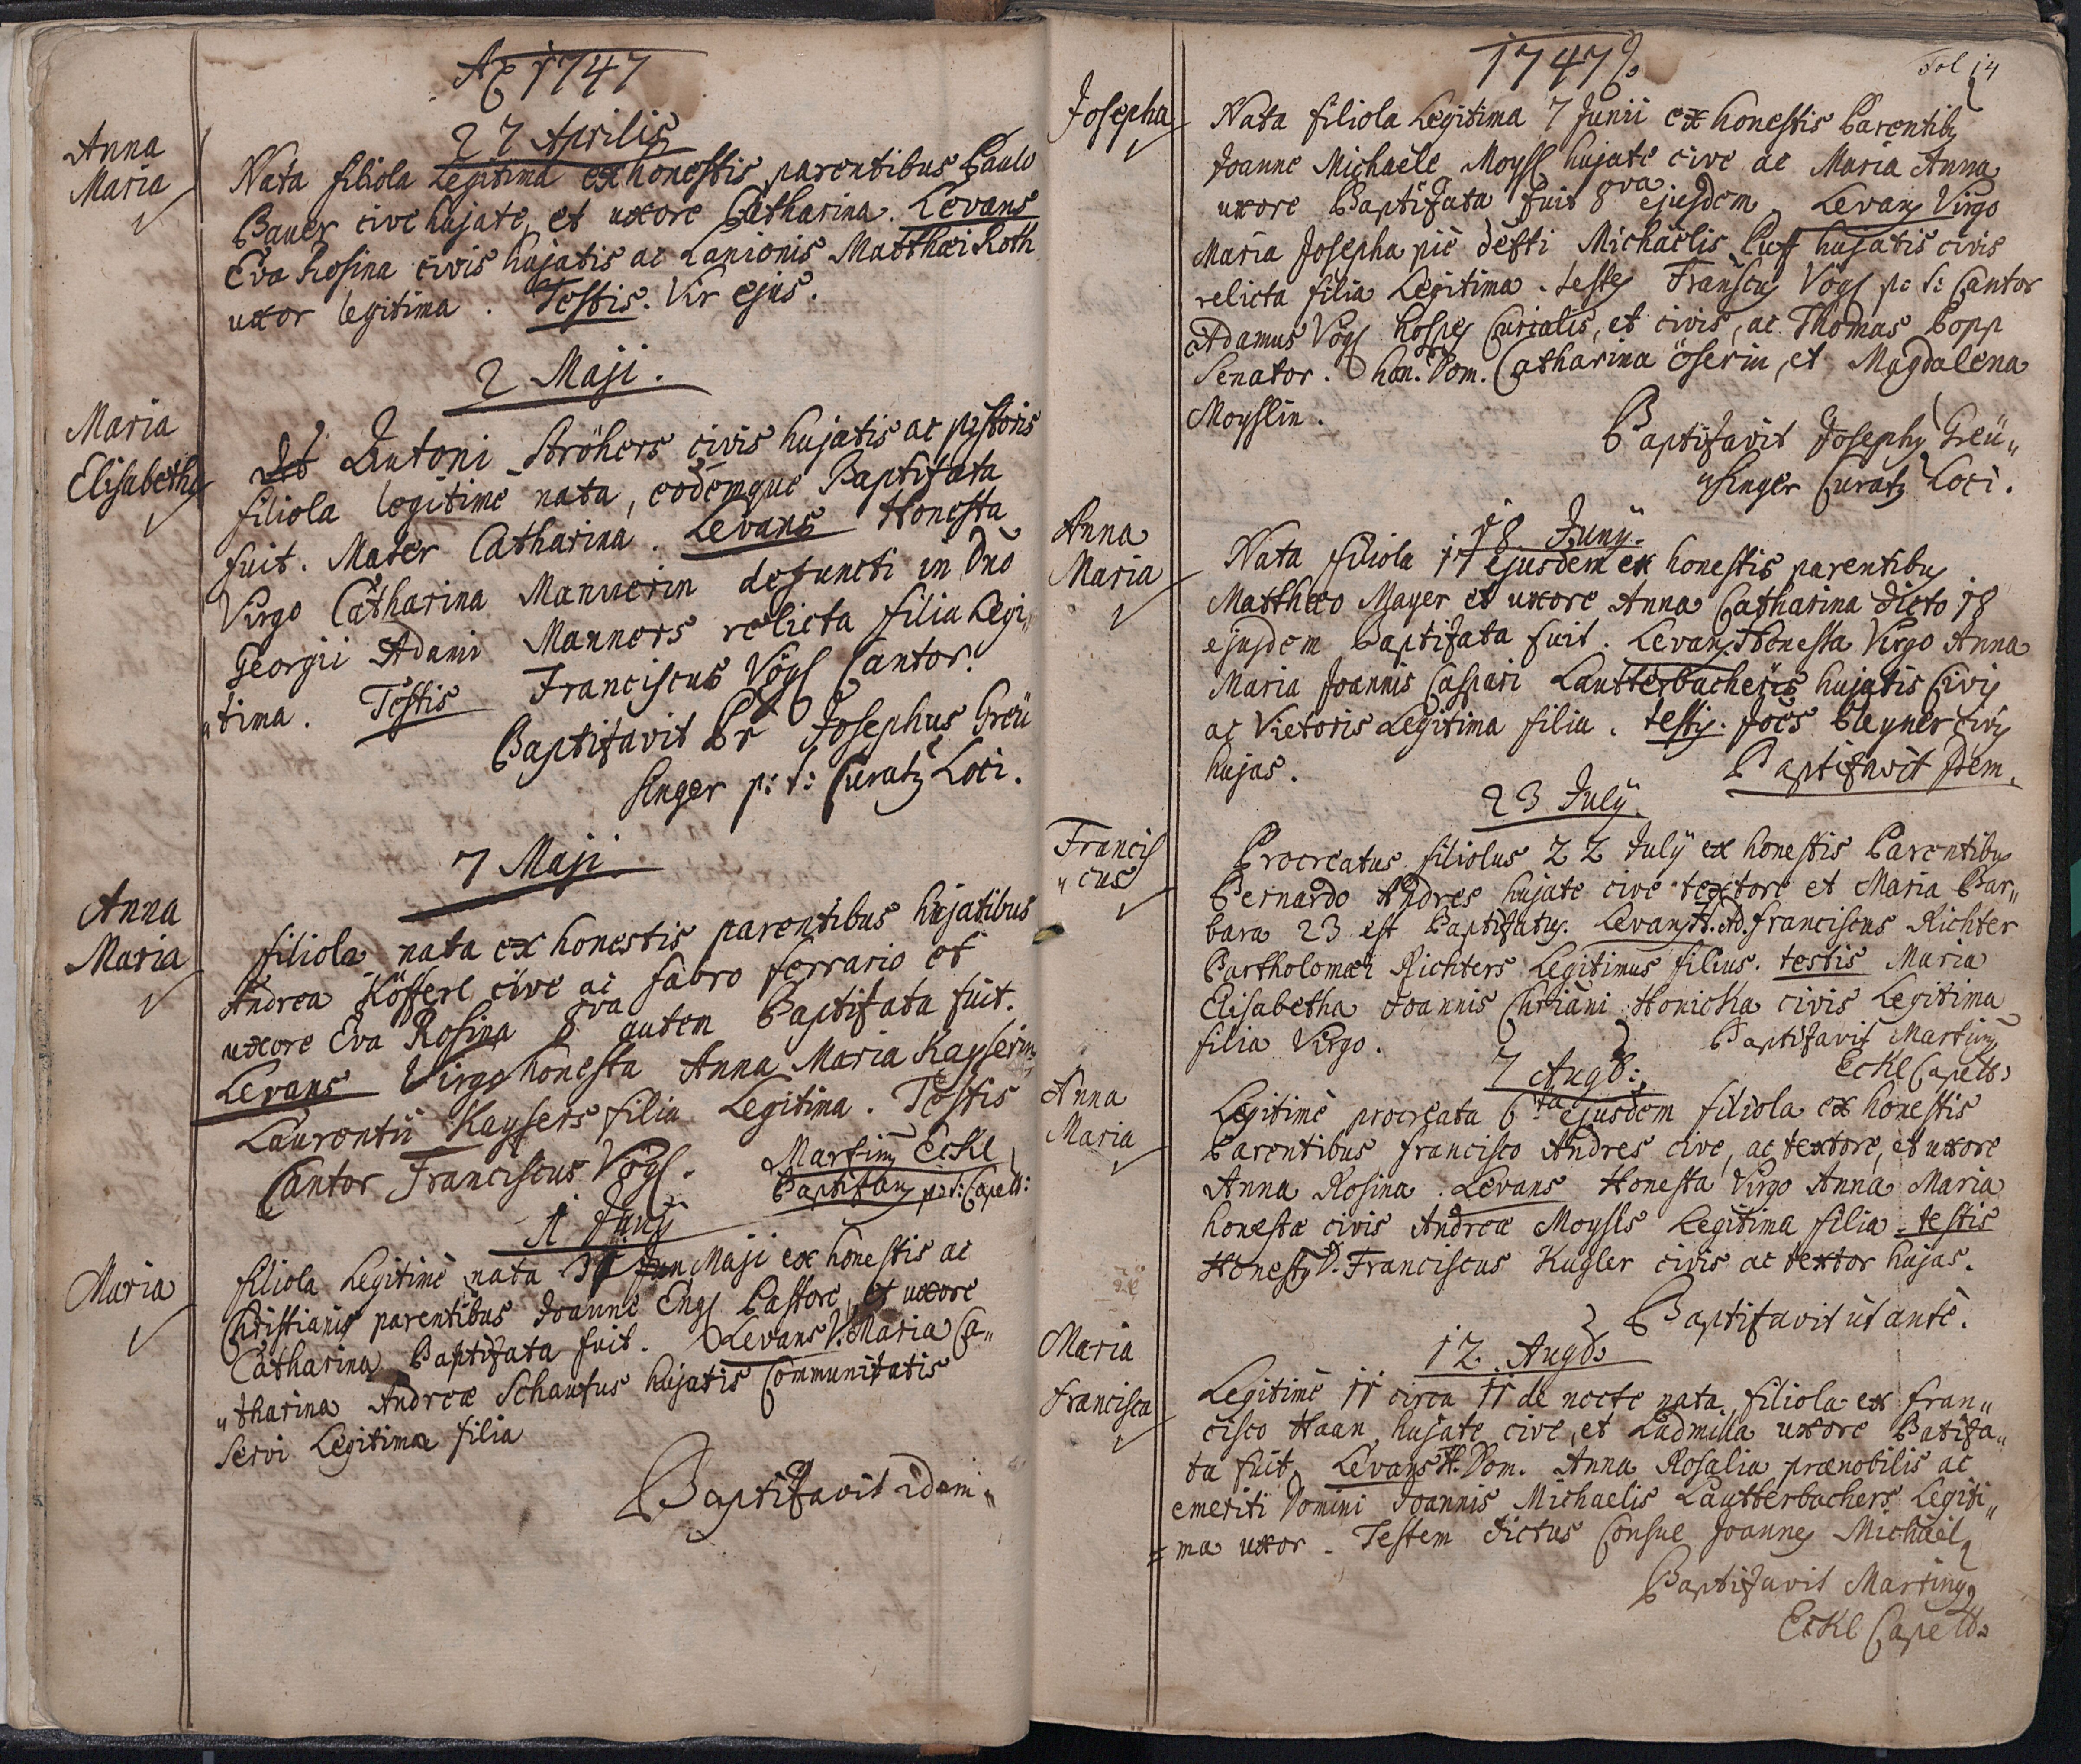 Aõ 1747
27 Aprilis
Anna
Maria
Nata filiola Legitima ex honestis parentibus Paulo
Bauer cive hujate, et uxore Catharina. Levans
Eva Rosina civis hujatis ac Lanionis Matthæi Roth
uxor legitima. Testis. Vir ejus.
2 Maji.
Maria
Elisabetha
Antoni Ströhers civis hujatis ac pistoris
filiola legitimè nata, eodemque Baptizata
fuit. Mater Catharina. Levans Honesta
Virgo Catharina Mannerin defuncti in Dno
Georgii Adami Manners relicta filia Legi„
„tima. Testis Franciscus Vögl Cantor.
Baptizavit Pr Josephus Greü
singer p: t: Curatg Loci.
7 Maji.
Anna
Maria
filiola nata ex honestis parentibus hujatibus
Andrea Köfferl cive ac fabro ferrario et
uxore Eva Rosina 8va autem Baptizata fuit.
Levans Virgo honesta Anna Maria Kayserin
Laurentii Kaysers filia Legitima. Testis
Cantor Franciscus Vögl. Marting Eckl
Baptizang p: t: Capell:
1 Junij
Maria
filiola Legitimè nata Maji ex honestis ac
Christianis parentibus Joanne Engl Pastore, et uxore
Catharina Baptizata fuit. Levans V. Maria Ca„
„tharina Andreæ Schaufus hujatis Communitatis
servi Legitima filia
Baptizavit idem„
1747
Fol 14
Josepha
Nata filiola Legitima 7 Junii ex honestis Parentibg
Joanne Michaele Moysl hujate cive ac Maria Anna
uxore Baptizata fuit 8va ejusdem. Levang Virgo
Maria Josepha piè defti Michaelis Puff hujatis civis
relicta filia Legitima. testes Franscg Vögl p: t: Cantor
Adamus Vögl hospes Curialis, et civis, ac Thomas Popp
Senator. hon. Dom. Catharina öserin, et Magdalena
Moyslin.
Baptizavit Josephg Greü„
„singer Curatg Loci.
18 Junÿ.
Anna
Maria
Nata filiola 17 ejusdem ex honestis parentibg
Matthæo Mayer et uxore Anna Catharina dicto 18
ejusdem Baptizata fuit. Levang Honesta Virgo Anna
Maria Joannis Caspari Lautterbachers hujatis Civis
ac Vietoris Legitima filia. testis. Joēs Pleyner civis
hujas.
Baptizavit Idem.
23 Julÿ.
Francis
„cus
Procreatus filiolus 22 Julÿ ex honestis Parentibg
Bernardo Andres hujate cive textore et Maria Bar„
bara 23 est Baptizatg. Levang H. Ad. Franciscus Richter
Bartholomæi Richters Legitimus filius. testis Maria
Elisabetha Joannis Chriani Honicka civis Legitima
filia Virgo.
Baptizavit Marting
Eckl Capell:
7 Augt:
Anna
Maria
Legitimè procreata 6ta ejusdem filiola ex honestis
Parentibus Francisco Andres cive, ac textore, et uxore
Anna Rosina. Levans Honesta Virgo Anna Maria
honestæ civis Andreæ Moysls Legitima filia. testis
Honestg D. Franciscus Kugler civis ac textor hujas.
Baptizavit út antè.
12. Augt:
Maria
Francisca
Legitimè 11 circa 11 de nocte nata filiola ex Fran„
cisco Haan hujate cive, et Ludmilla uxore Batiza„
ta fuit. Levans H. Dom. Anna Rosalia prænobilis ac
emeriti Domini Joannis Michaelis Lautterbachers Legiti„
ma uxor. Testem dictus Consul Joannes Michael
Baptizavit Martingg
Eckl Capell: